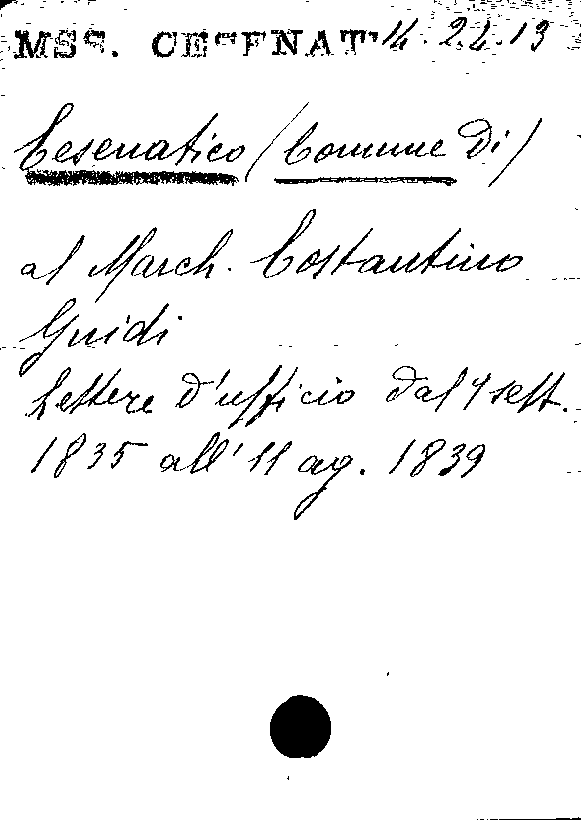 MSS. CESENAT. 14.24.13
Cesenatico (Comune di)
al March. Costantino
Guidi
Lettere d'ufficio dal 4 sett.
1835 all'11 ag. 1839